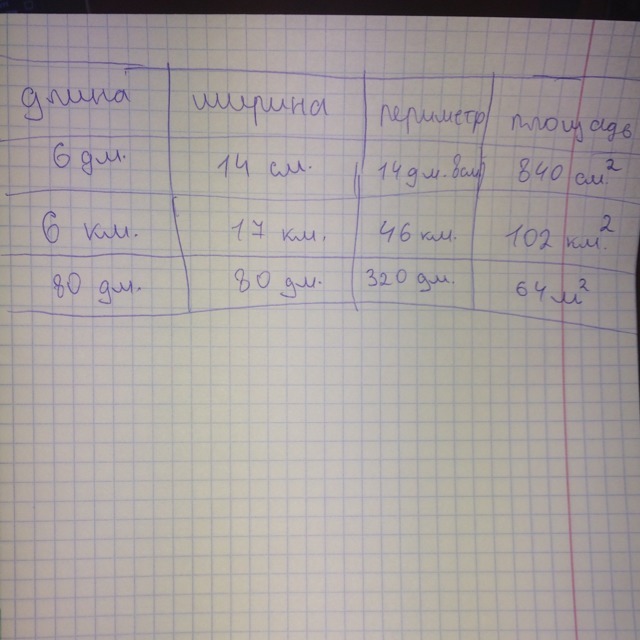 длина ширина периметр площадь
6 дм. 14 см. 14 дм. 8 см 840 см.²
6 км. 17 км. 46 км. 102 км.²
80 дм. 80 дм. 320 дм. 64 м²